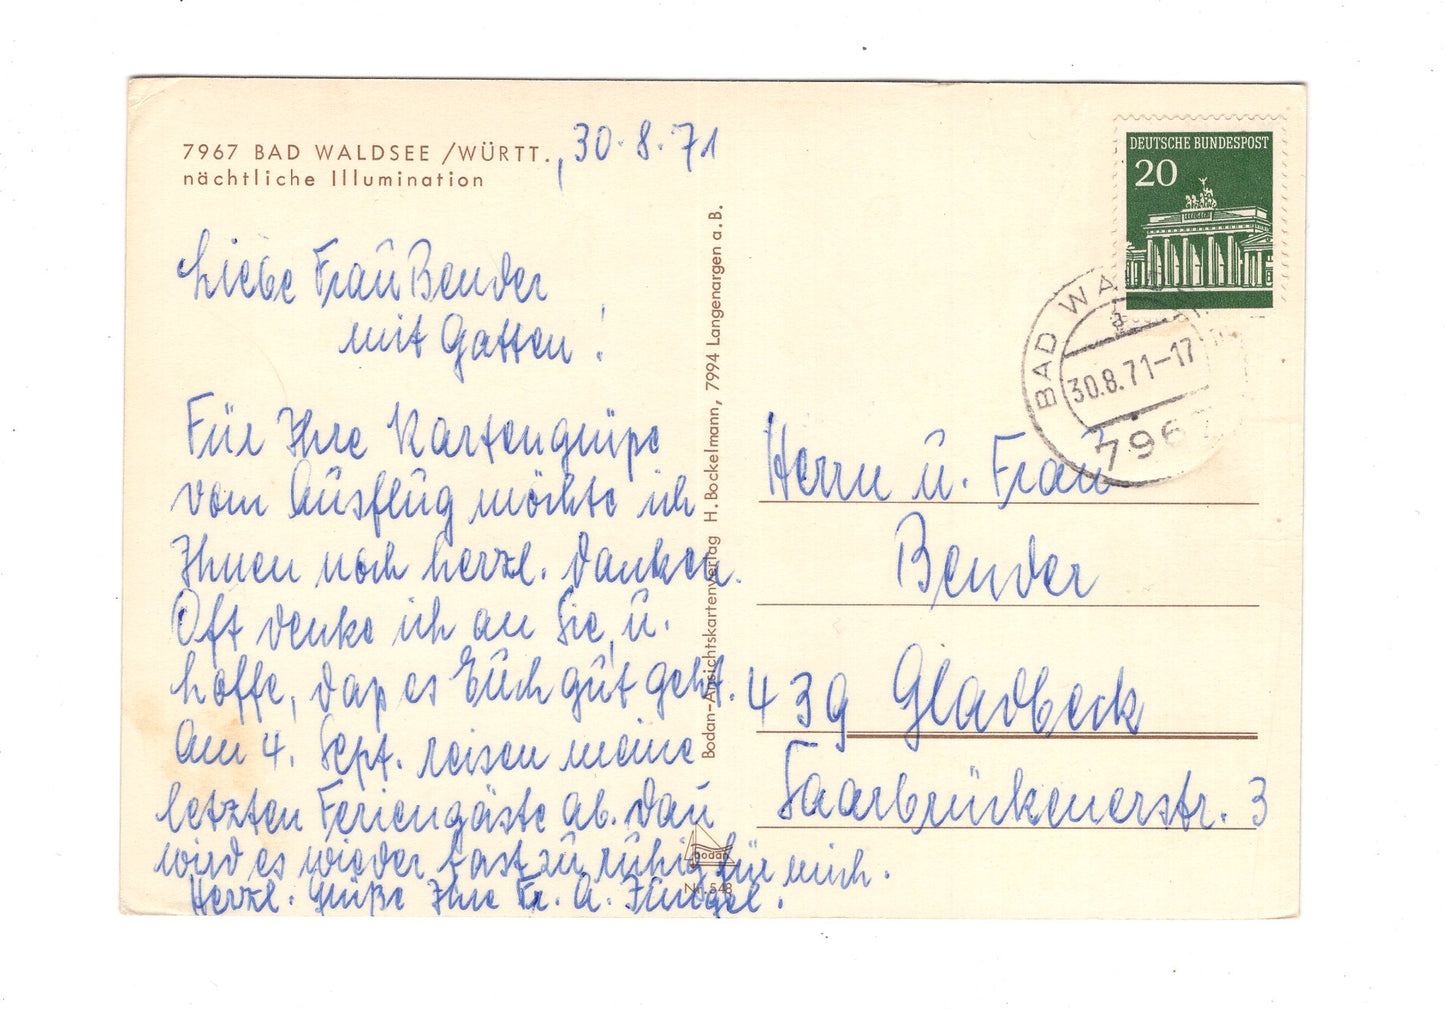 7967 BAD WALDSEE /WÜRTT., 30.8.71
nächtliche Illumination
Liebe Frau Bender
mit Gatten!
Für Ihre Kartengrüße
vom Ausflug möchte ich
Ihnen noch herzl. danken.
Oft denke ich an Sie, u.
hoffe, daß es Euch gut geht.
Am 4. Sept. reisen meine
letzten Feriengäste ab. Dan
wird es wieder fast zu ruhig für mich.
Herzl. Grüße Ihre Fr. A.
Bodan-Ansichtskartenverlag H. Bockelmann, 7994 Langenargen a.B.
bodan
Nr. 548
DEUTSCHE BUNDESPOST
20
BAD WALDSEE
a
30.8.71-17
7967
Herrn u. Frau
Bender
439 Gladbeck
Saarbrückenerstr. 3